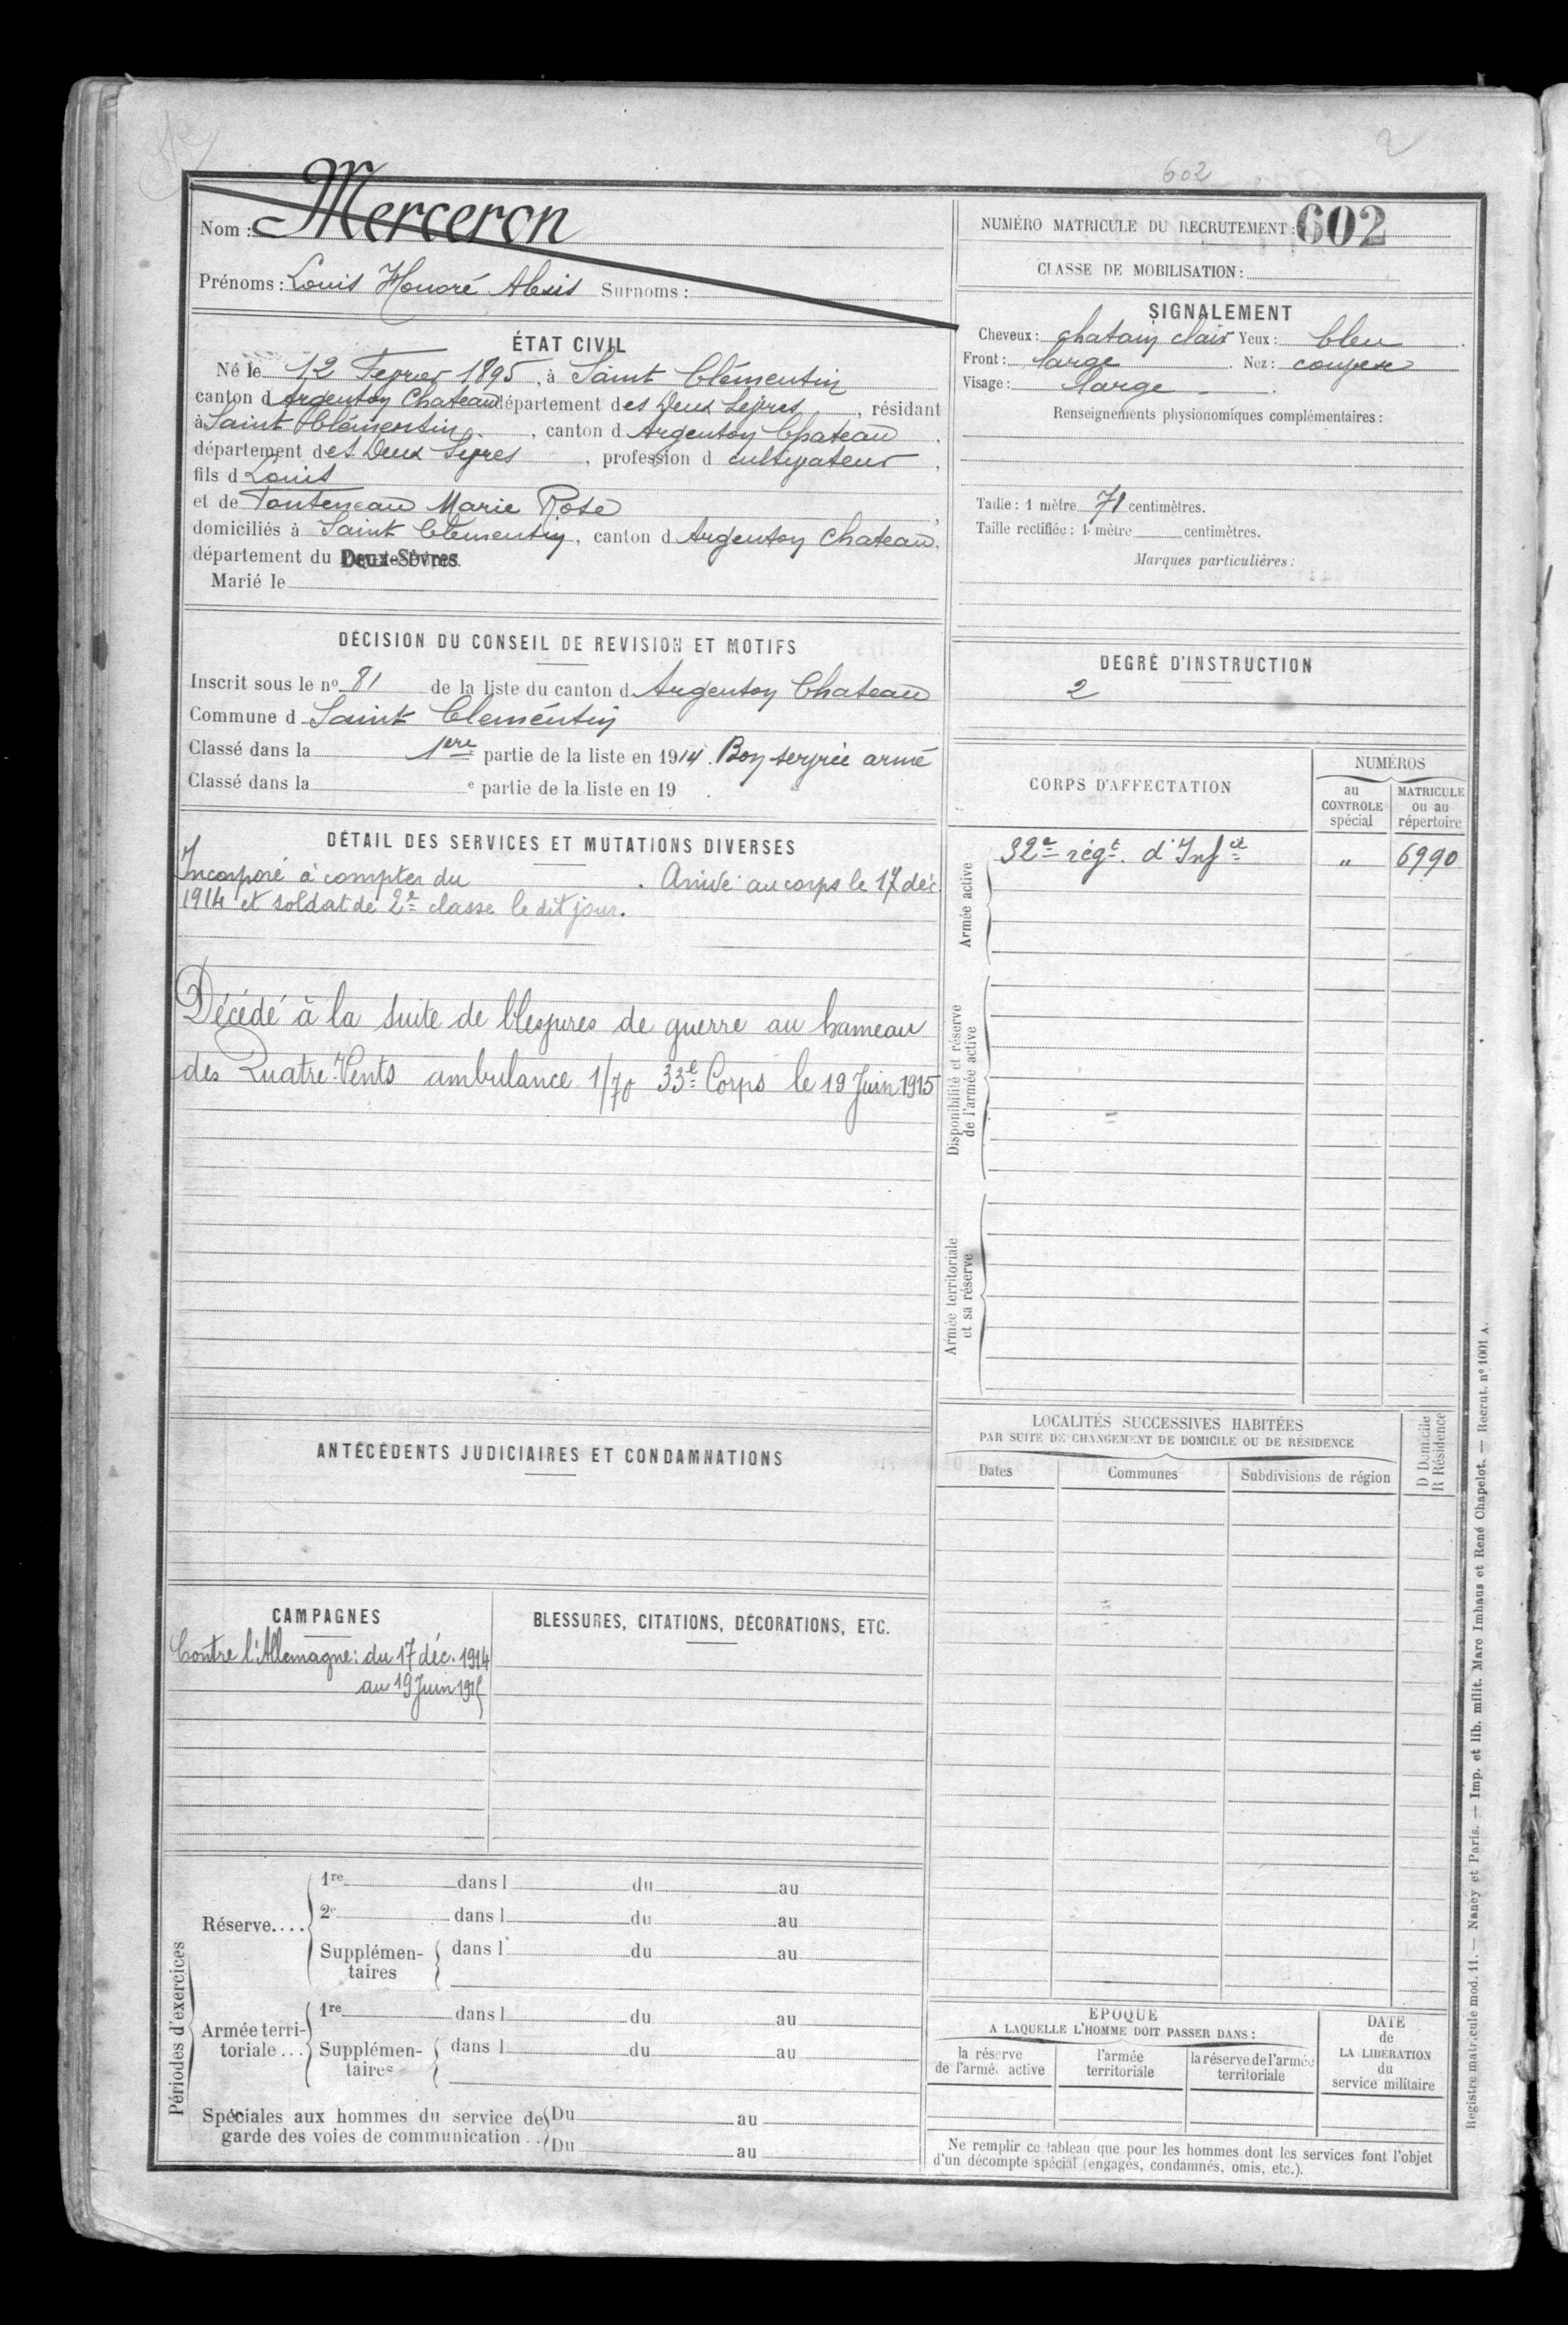 602
2
Nom : Merceron
Prénoms : Louis Honoré Alexis Surnoms :
ÉTAT CIVIL
Né le 12 Fevrier 1895, à Saint Clémentin
canton d Argenton Chateau département des Deux Sevres, résidant
à Saint Clémentin, canton d Argenton Chateau,
département des Deux Sevres, profession d cultivateur,
fils d Louis
et de Fonteneau Marie Rose,
domiciliés à Saint Clementin, canton d Argenton Chateau,
département du Deux-Sèvres.
Marié le
DÉCISION DU CONSEIL DE REVISION ET MOTIFS
Inscrit sous le nº 81 de la liste du canton d Argenton Chateau
Commune d Saint Clémentin
Classé dans la 1ère partie de la liste en 1914. Bon service armé
Classé dans la e partie de la liste en 19 .
DÉTAIL DES SERVICES ET MUTATIONS DIVERSES
Incorporé à compter du . Arrivé au corps le 17 déc.
1914 et soldat de 2e classe le dit jour.
Décédé à la suite de blessures de guerre au hameau
des Quatre-Vents ambulance 1/70 33e Corps le 19 Juin 1915
ANTÉCÉDENTS JUDICIAIRES ET CONDAMNATIONS
CAMPAGNES
Contre l'Allemagne : du 17 déc. 1914
au 19 Juin 1915
BLESSURES, CITATIONS, DÉCORATIONS, ETC.
Périodes d'exercices
Réserve....
1re dans l du au
2e dans l du au
Supplémentaires dans l du au
Armée territoriale ...
1re dans l du au
Supplémentaires dans l du au
Spéciales aux hommes du service de
garde des voies de communication ..
Du au
Du au
NUMÉRO MATRICULE DU RECRUTEMENT : 602
CLASSE DE MOBILISATION :
SIGNALEMENT
Cheveux : chatain clair Yeux : bleu .
Front : large . Nez :
Visage : large .
Renseignements physionomiques complémentaires :
Taille : 1 mètre 71 centimètres.
Taille rectifiée : 1 mètre centimètres.
Marques particulières :
DEGRÉ D'INSTRUCTION
2
CORPS D'AFFECTATION
NUMÉROS
au CONTROLE spécial
MATRICULE ou au répertoire
Armée active
32e régt. d'Infie " 6990
Disponibilité et réserve
de l'armée active
Armée territoriale
et sa réserve
LOCALITÉS SUCCESSIVES HABITÉES
PAR SUITE DE CHANGEMENT DE DOMICILE OU DE RÉSIDENCE
Dates Communes Subdivisions de région
D Domicile
R Résidence
EPOQUE
A LAQUELLE L'HOMME DOIT PASSER DANS :
la réserve
de l'armée active
l'armée
territoriale
la réserve de l'armée
territoriale
DATE
de
LA LIBÉRATION
du
service militaire
Ne remplir ce tableau que pour les hommes dont les services font l'objet
d'un décompte spécial (engagés, condamnés, omis, etc.).
Registre matricule mod. 11. — Nancy et Paris. — Imp. et lib. milit. Marc Imhaus et René Chapelot. — Recrut. nº 1001 A.